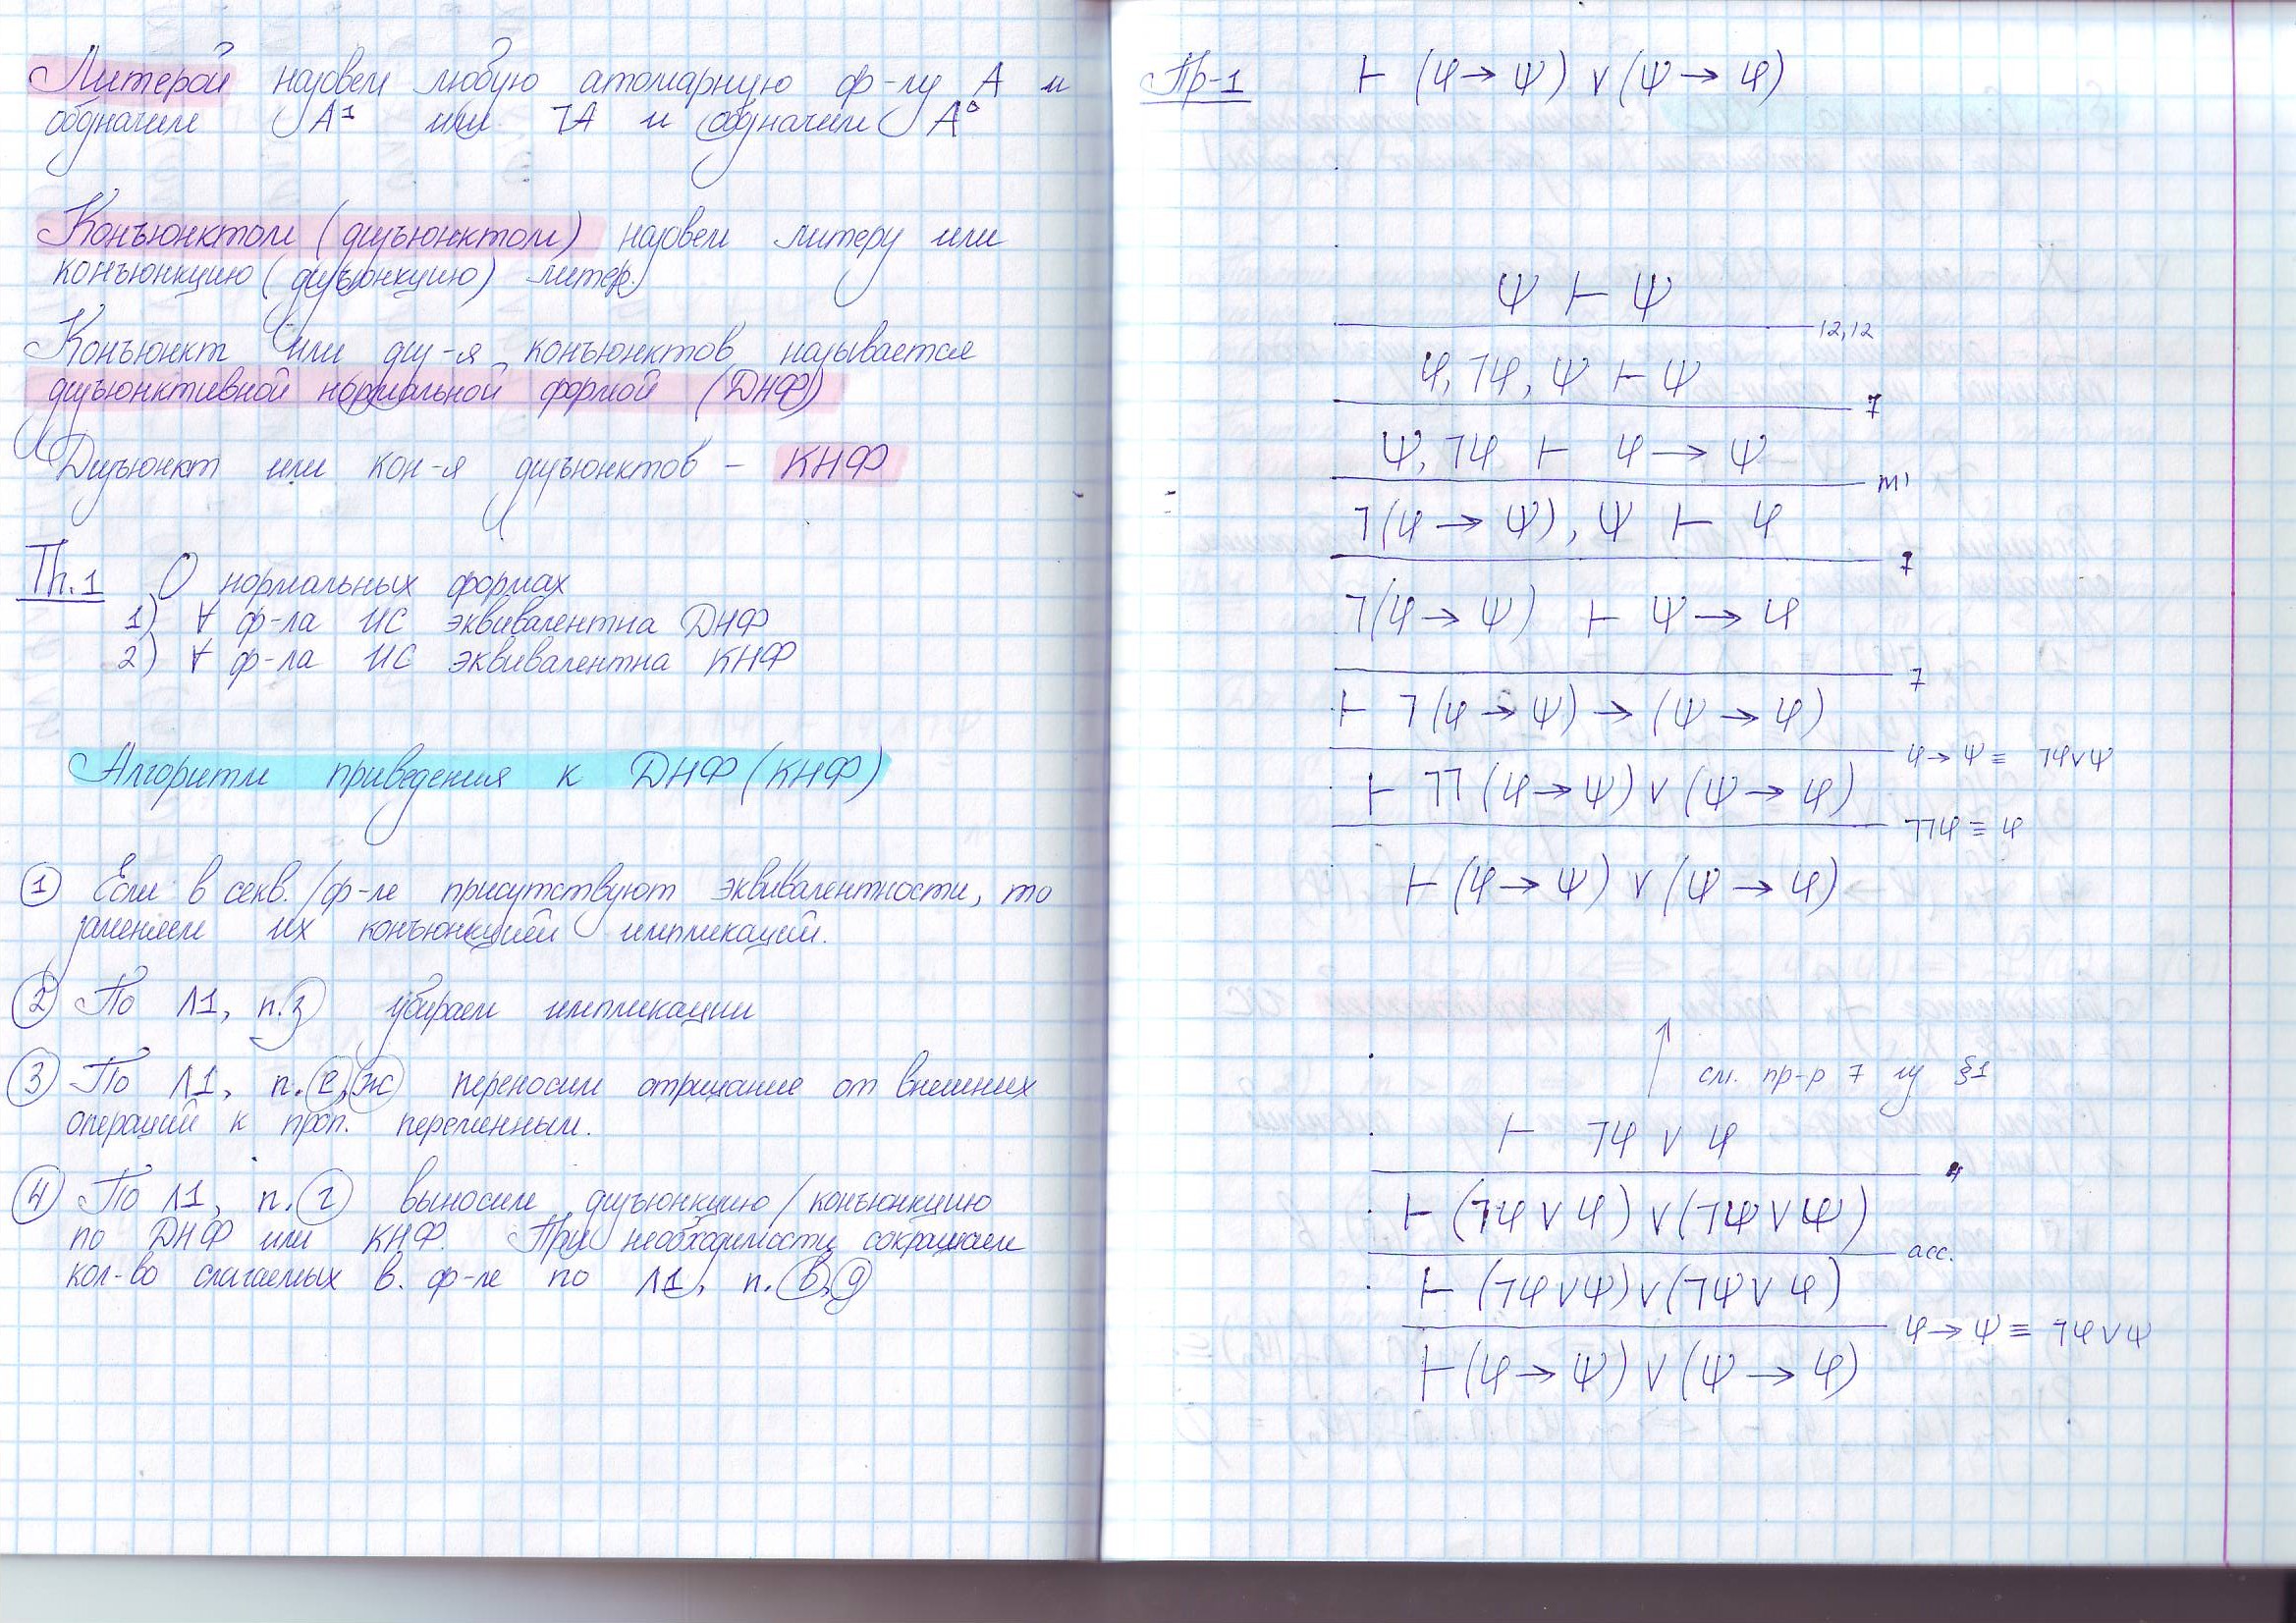 Литерой назовем любую атомарную ф-лу A и
обозначим A¹ или ¬A и обозначим A⁰
Конъюнктом (дизъюнктом) назовем литеру или
конъюнкцию (дизъюнкцию) литер.
Конъюнкт или диз-я конъюнктов называется
дизъюнктивной нормальной формой (ДНФ)
Дизъюнкт или кон-я дизъюнктов – КНФ
Th.1 О нормальных формах
1) ∀ ф-ла ИС эквивалентна ДНФ
2) ∀ ф-ла ИС эквивалентна КНФ
Алгоритм приведения к ДНФ (КНФ)
① Если в секв./ф-ле присутствуют эквивалентности, то
заменяем их конъюнкцией импликаций.
② По Л1, п.з убираем импликации
③ По Л1, п. е, ж переносим отрицание от внешних
операций к проп. переменным.
④ По Л1, п. г выносим дизъюнкцию/конъюнкцию
по ДНФ или КНФ. При необходимости сокращаем
кол-во слагаемых в. ф-ле по Л1, п. в, д
Пр-1 ⊢ (φ → ψ) ∨ (ψ → φ)
ψ ⊢ ψ
12,12
φ, ¬φ, ψ ⊢ ψ
7
ψ, ¬φ ⊢ φ → ψ
m'
¬(φ → ψ), ψ ⊢ φ
7
¬(φ → ψ) ⊢ ψ → φ
7
⊢ ¬(φ → ψ) → (ψ → φ)
φ → ψ ≡ ¬φ∨ψ
⊢ ¬¬(φ → ψ) ∨ (ψ → φ)
¬¬φ ≡ φ
⊢ (φ → ψ) ∨ (ψ → φ)
см. пр-р 7 из §1
⊢ ¬φ ∨ φ
4
⊢ (¬φ ∨ φ) ∨ (¬ψ ∨ ψ)
асс.
⊢ (¬φ∨ψ) ∨ (¬ψ ∨ φ)
φ → ψ ≡ ¬φ ∨ ψ
⊢ (φ → ψ) ∨ (ψ → φ)